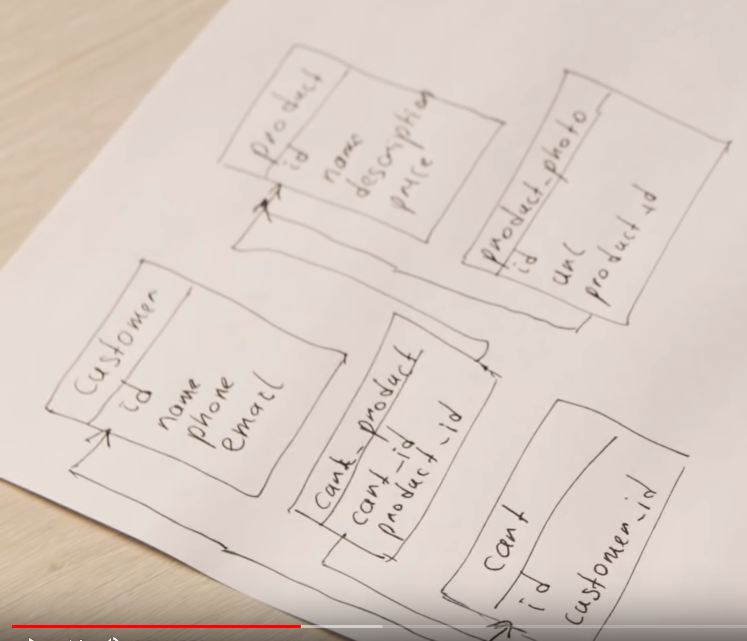 product
id
name
description
price
product_photo
id
url
product_id
customer
id
name
phone
email
cart_product
cart_id
product_id
cart
id
customer_id